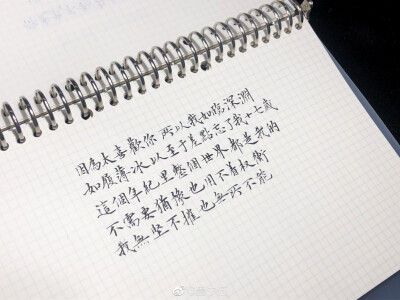 因為太喜歡你 所以我如臨深淵
如履薄冰以至于差點忘了我十七歲
這個年紀里整個世界都是我的
不需要猶豫也用不着权衡
我無坚不摧也無所不能